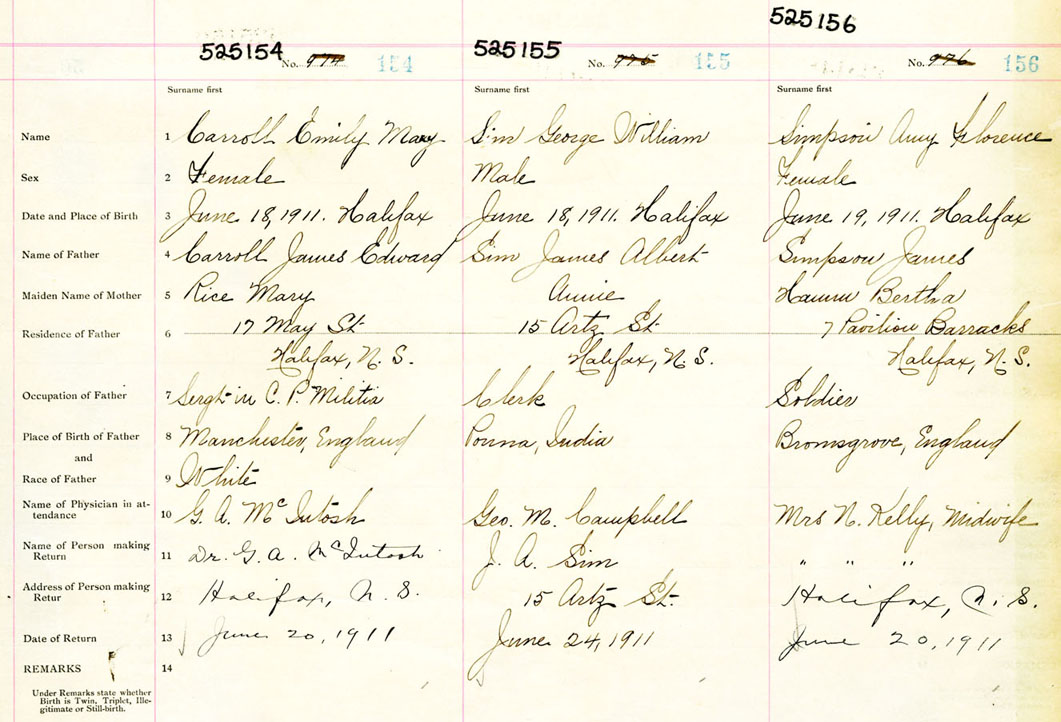 525154 No. 974 154 525155 No. 975 155 525156 No. 976 156
Surname first Surname first Surname first
Name 1 Carroll Emily Mary Sim George William Simpson Amy Florence
Sex 2 Female Male Female
Date and Place of Birth 3 June 18, 1911. Halifax June 18, 1911. Halifax June 19, 1911. Halifax
Name of Father 4 Carroll James Edward Sim James Albert Simpson James
Maiden Name of Mother 5 Rice Mary Annie Hamm Bertha
Residence of Father 6 17 May St 15 Artz St. 7 Pavilion Barracks
Halifax, N. S. Halifax, N. S. Halifax, N. S.
Occupation of Father 7 Sergt in C. P. Militia Clerk Soldier
Place of Birth of Father 8 Manchester, England Poona, India Bromsgrove, England
and
Race of Father 9 White
Name of Physician in at-
tendance 10 G. A. McIntosh Geo. M. Campbell Mrs N. Kelly, Midwife
Name of Person making
Return 11 Dr. G. A. McIntosh J. A. Sim " " "
Address of Person making
Retur 12 Halifax, N. S. 15 Artz St. Halifax, N. S.
Date of Return 13 June 20, 1911 June 24, 1911 June 20, 1911
REMARKS 14
Under Remarks state whether
Birth is Twin, Triplet, Ille-
gitimate or Still-birth.